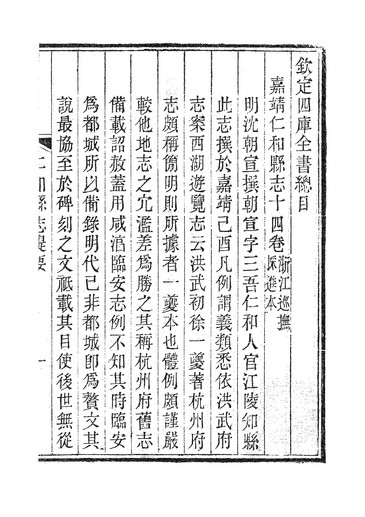 欽定四庫全書總目
嘉靖仁和縣志十四卷浙江巡撫採進本
明沈朝宣撰朝宣字三吾仁和人官江陵知縣
此志撰於嘉靖己酉凡例謂義類悉依洪武府
志案西湖遊覽志云洪武初徐一夔著杭州府
志頗稱簡明則所據者一夔本也體例頗謹嚴
較他地志之冗濫差為勝之其稱杭州府舊志
備載詔赦蓋用咸淳臨安志例不知其時臨安
為都城所以備錄明代已非都城卽為贅文其
說最協至於碑刻之文祗載其目使後世無從
仁和縣志提要
一